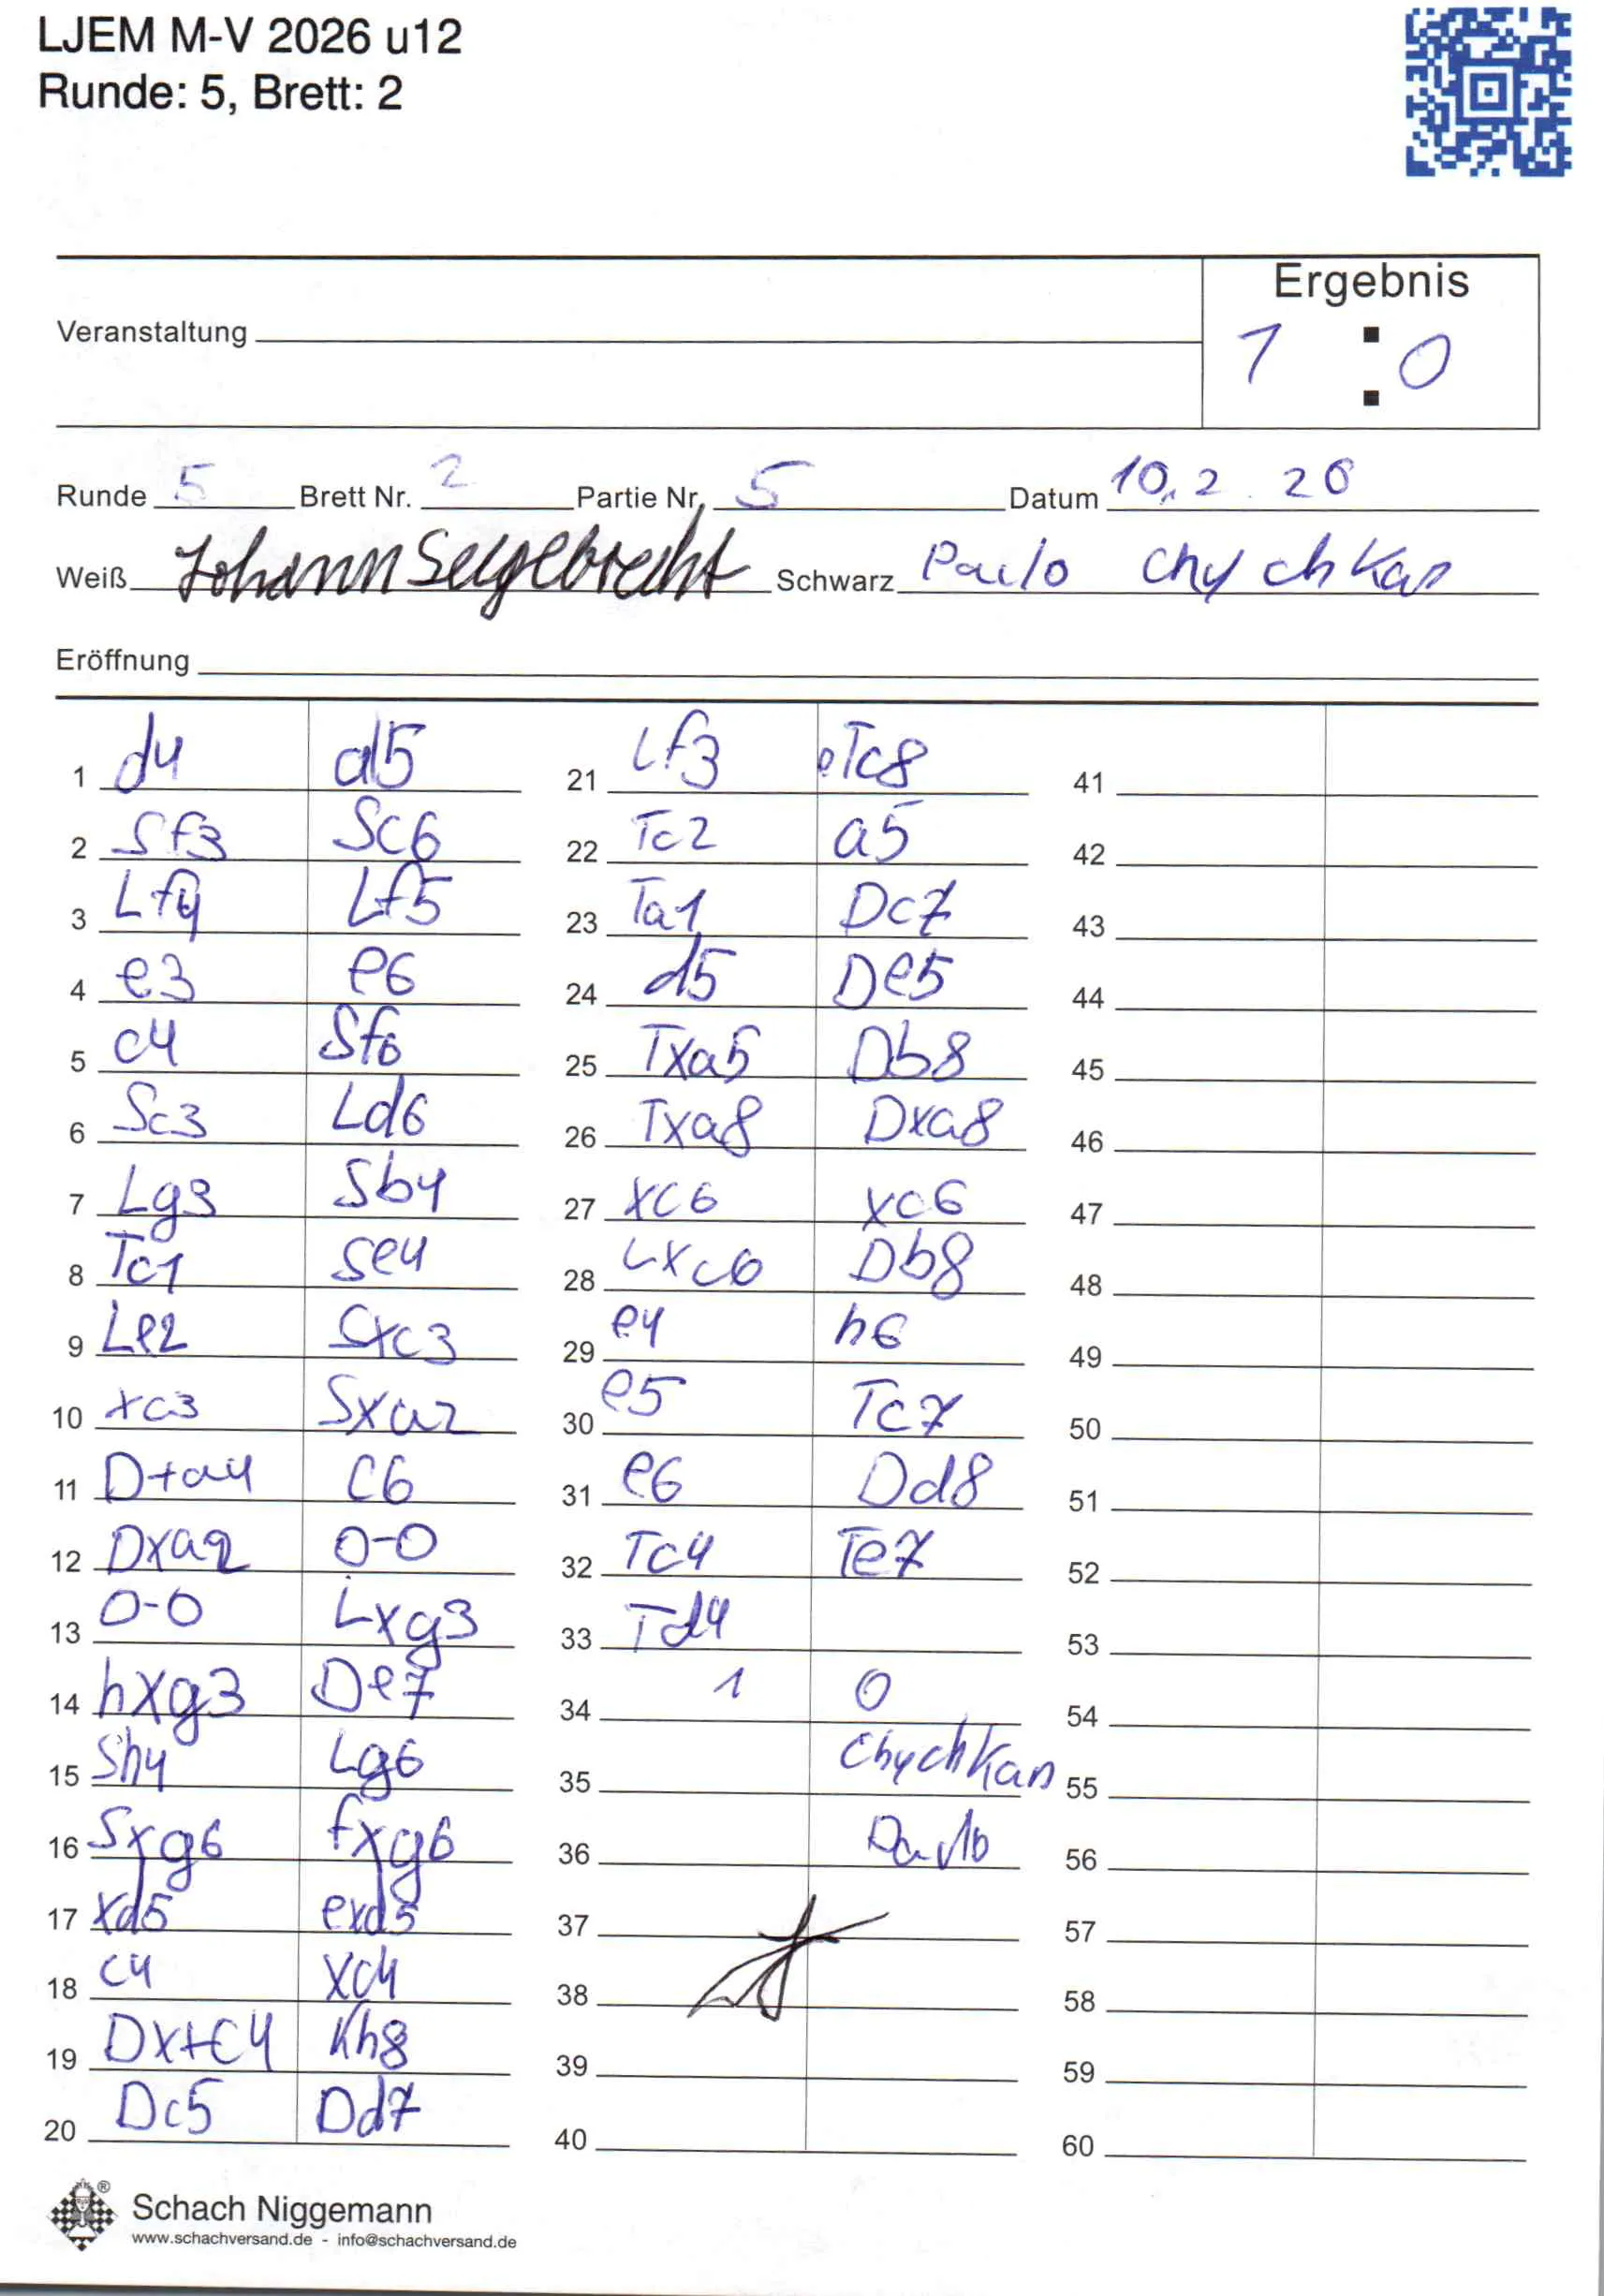 LJEM M-V 2026 u12
Runde: 5, Brett: 2
Ergebnis
Veranstaltung
1 : 0
Runde 5 Brett Nr. 2 Partie Nr. 5 Datum 10.2.26
Weiß Johann Schwarz Pavlo Chychkan
Eröffnung
1 d4 d5
2 Sf3 Sc6
3 Lf4 Lf5
4 e3 e6
5 c4 Sf6
6 Sc3 Ld6
7 Lg3 Sb4
8 Tc1 Se4
9 Le2 Sxc3
10 xc3 Sxa2
11 D+a4 c6
12 Dxa2 0-0
13 0-0 Lxg3
14 hxg3 De7
15 Sh4 Lg6
16 Sxg6 fxg6
17 xd5 exd5
18 c4 xc4
19 Dx+c4 Kh8
20 Dc5 Dd7
21 Lf3 eTc8
22 Tc2 a5
23 Ta1 Dc7
24 d5 De5
25 Txa5 Db8
26 Txa8 Dxa8
27 xc6 xc6
28 Lxc6 Db8
29 e4 h6
30 e5 Tc7
31 e6 Dd8
32 Tc4 Te7
33 Td4
34 1 0
35 Chychkan
36 Pavlo
37
38
39
40
41
42
43
44
45
46
47
48
49
50
51
52
53
54
55
56
57
58
59
60
Schach Niggemann
www.schachversand.de - info@schachversand.de